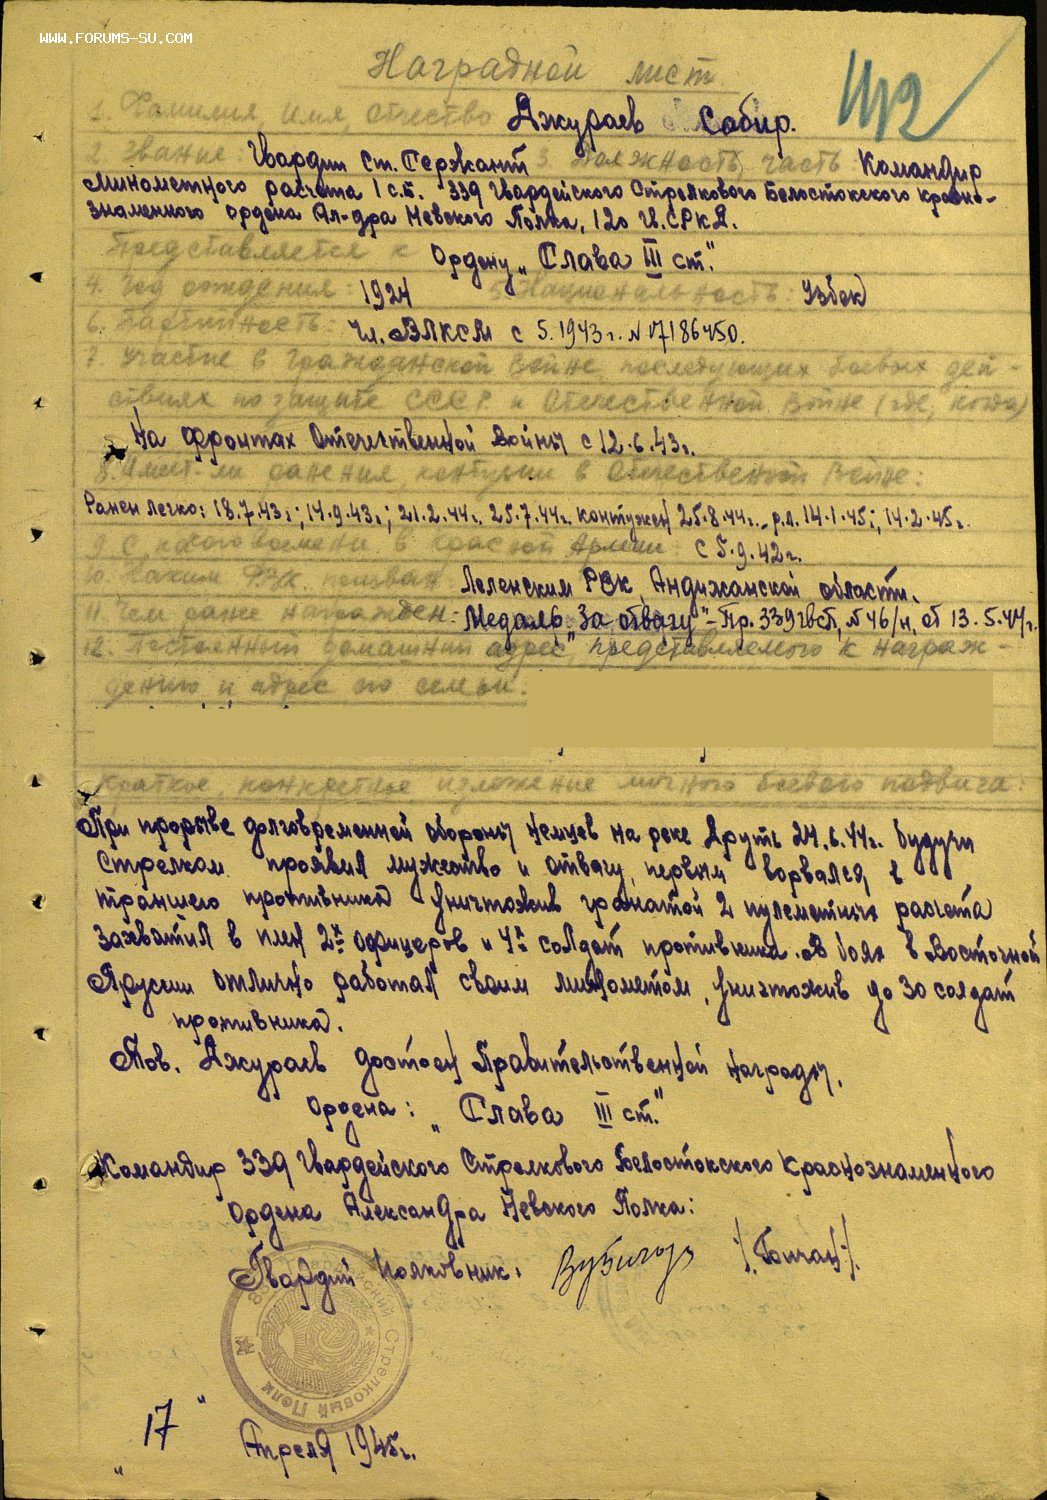 WWW.FORUMS-SU.COM
Наградной лист
1. Фамилия, имя, отчество Джураев Сабир.
2. Звание: Гвардии Ст. Сержант 3. Должность, часть: Командир
минометного расчета 1 с.б. 339 Гвардейского Стрелкового Белостокского красно-
знаменного ордена Ал-дра Невского Полка, 120 Гв.СРКД.
Представляется к Ордену „Слава III ст."
4. Год рождения: 1924 5. Национальность: Узбек
6. Партийность: Чл. ВЛКСМ с 5.1943г. N 17186450.
7. Участие в гражданской войне, последующих боевых дей-
ствиях по защите СССР и Отечественной войне (где, когда)
На фронтах Отечественной войны с 12.6.43г.
8. Имеет ли ранения, контузии в Отечественной войне:
Ранен легко: 18.7.43г; 14.9.43г; 21.2.44г. 25.7.44г. контужен 25.8.44г. р.л. 14.1.45г; 14.2.45г.
9. С какого времени в Красной Армии: с 5.9.42г.
10. Каким РВК призван: РВК, Андижанской области.
11. Чем ранее награжден: Медаль „За отвагу" - Пр. 339гвсп, N 46/н, от 13.5.44г.
12. Постоянный домашний адрес представляемого к награж-
дению и адрес его семьи.
Краткое, конкретное изложение личного боевого подвига:
При прорыве долговременной обороны немцев на реке Друть 24.6.44г. будучи
Стрелком проявил мужество и отвагу, первым ворвался в
траншею противника уничтожив гранатой 2 пулеметных расчета
захватил в плен 2х офицеров и 4х солдат противника. В боях в Восточной
Пруссии отлично работал своим минометом, уничтожив до 30 солдат
противника.
Тов. Джураев достоен Правительственной награды,
Ордена: „Слава III ст."
Командир 339 Гвардейского Стрелкового Белостокского Краснознаменного
Ордена Александра Невского Полка:
Гвардии Полковник:
Стрелковый Полк
„17" Апреля 1945г.